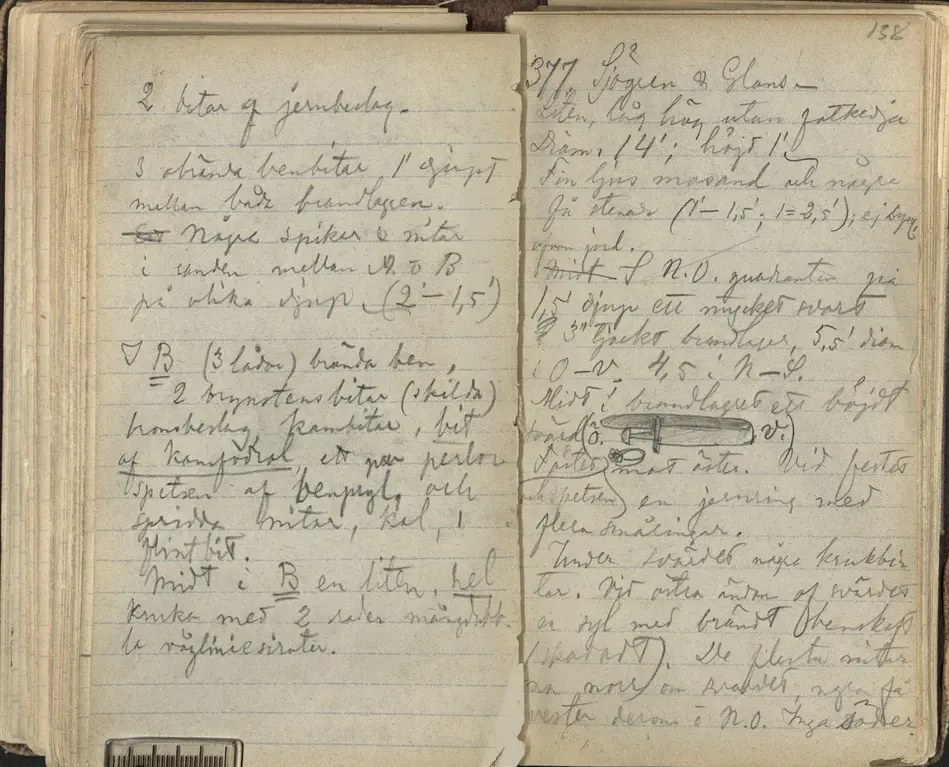 2 bitar af jernbeslag.
3 obrända benbitar 1' djupt
mellan båda brandlagren.
Några spikar o nitar
i sanden mellan A. o B
på olika djup. (2'–1,5')
I B (3 lådor) brända ben,
2 brynstensbitar (skilda)
bronsbeslag, kambitar, bit
af kamfodral, ett par perlor
spetsen af benpryl, och
spridda nitar, kol, 1
flintbit.
Midt i B en liten, hel
kruka med 2 rader mångdubb-
la vågliniesirater.
138
377. S² Sjögren & Glans.
Liten, låg hög utan fotkedja
Diam. 14'; höjd 1'.
Fin ljus mosand och några
få stenar (1'–1,5'; 1=2,5'); ej
jord.
Midt I N.O. quadranten på
1,5 djup ett mycket svart
3" tjockt brandlager, 5,5' diam
i O–V. 4,5 i N–S.
Midt i brandlagret ett böjdt
svärd (O. V.)
Fästet mot öster. Vid fästet
och spetsen en jernring med
flera småringar.
Under svärdet några krukbi-
tar. Vid östra ändan af svärdet
en syl med brändt benskaft
(skadadt). De flesta nitar
na norr om svärdet, några få
vester derom i N.O. Inga